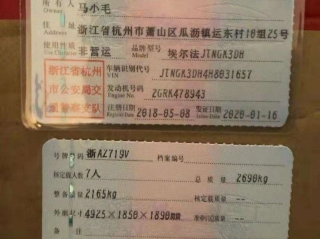 所有人 马小毛
Owner
住址 浙江省杭州市萧山区瓜沥镇运东村18组25号
Address
使用性质 非营运 品牌型号 埃尔法JTNGK3DH
浙江省杭州市公安局交通警察支队
车辆识别代号 JTNGK3DH4H8031657
VIN
发动机号码 2GRK478943
Engine No.
注册日期 2018-05-08 发证日期 2020-01-16
号牌号码 浙AZ719V 档案编号
核定载人数 7人 总质量 2690kg
整备质量 2165kg 核定载质量
外廓尺寸 4925×1850×1890mm 准牵引总质量